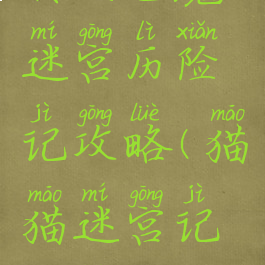 mí gōng lì xiǎn
迷宫历险
jì gōng lüè māo
记攻略(猫
māo mí gōng jì
猫迷宫记